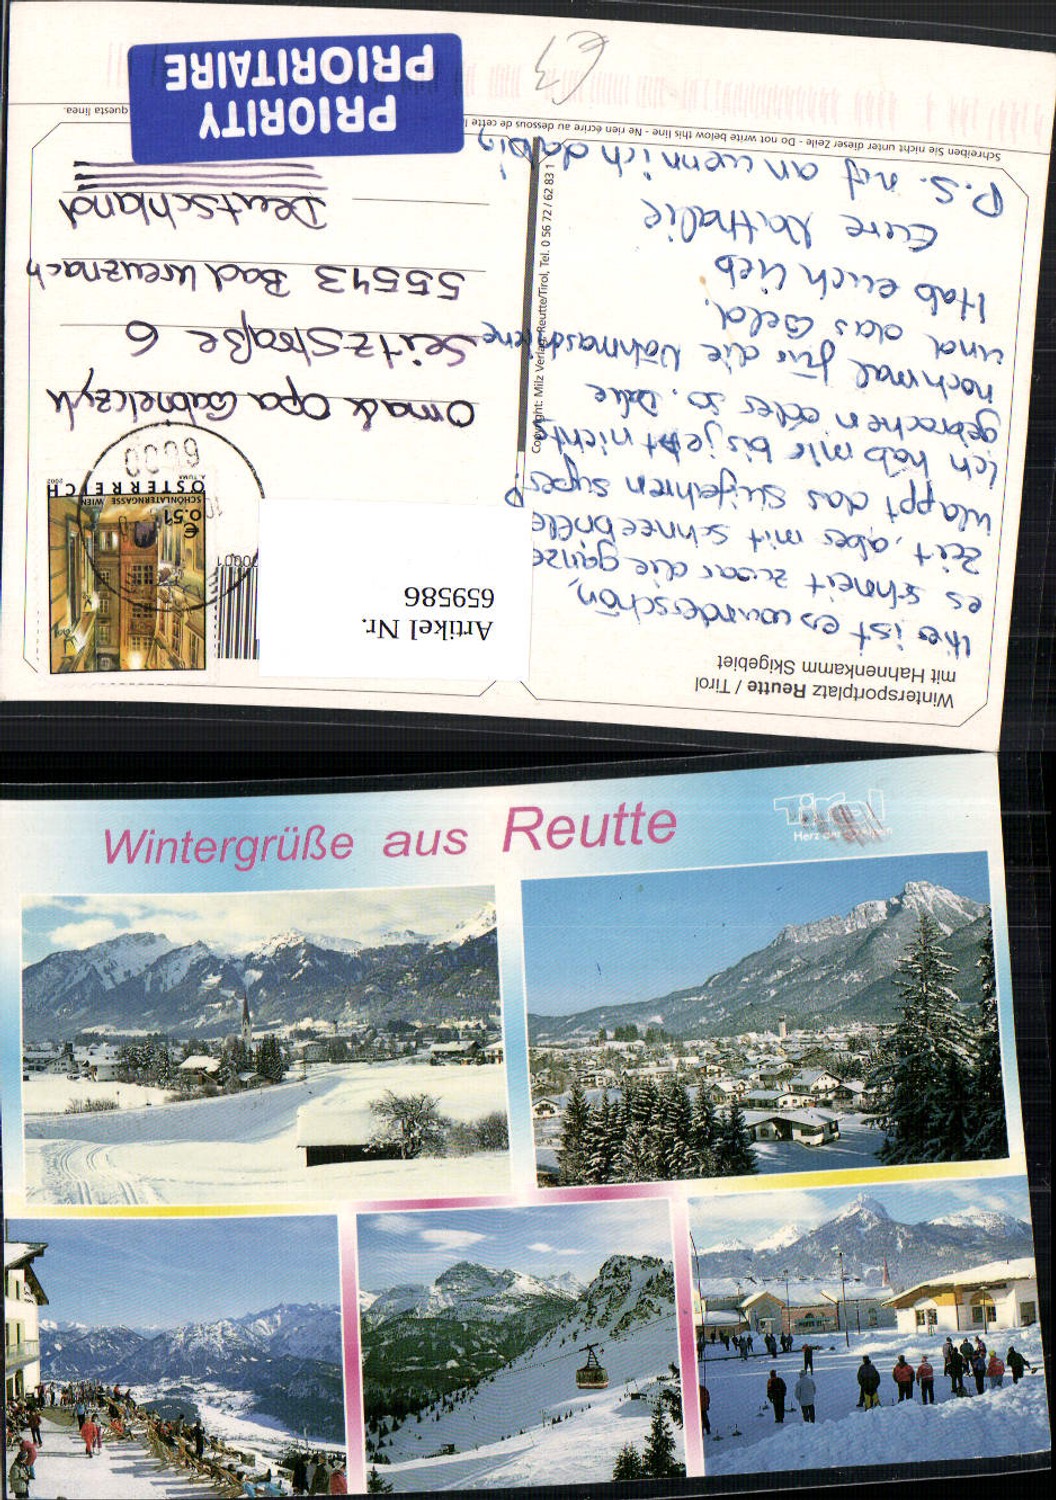 Wintersportplatz Reutte / Tirol
mit Hahnenkamm Skigebiet
Hier ist es wunderschön,
es schneit zwar die ganze
Zeit, aber mit Schneebrille
klappt das Skifahren super!
Ich hab mir bis jetzt nichts
gebrochen oder so. Danke
nochmal für die Nähmaschine
und das Geld.
Hab euch lieb
Eure Natthalie
P.S. ruf an wenn ich da bin!
Copyright: Milz Verlag, Reutte/Tirol, Tel. 0 56 72 / 62 83 1
Schreiben Sie nicht unter dieser Zeile - Do not write below this line - Ne rien écrire au dessous de cette
questa linea.
Artikel Nr.
659586
€ 0.51
SCHÖNLATERNGASSE WIEN
ÖSTERREICH
2002
6600
Oma & Opa Gabrielczyk
Seitzstraße 6
55543 Bad Kreuznach
Deutschland
PRIORITY
PRIORITAIRE
€3
Wintergrüße aus Reutte
Tirol